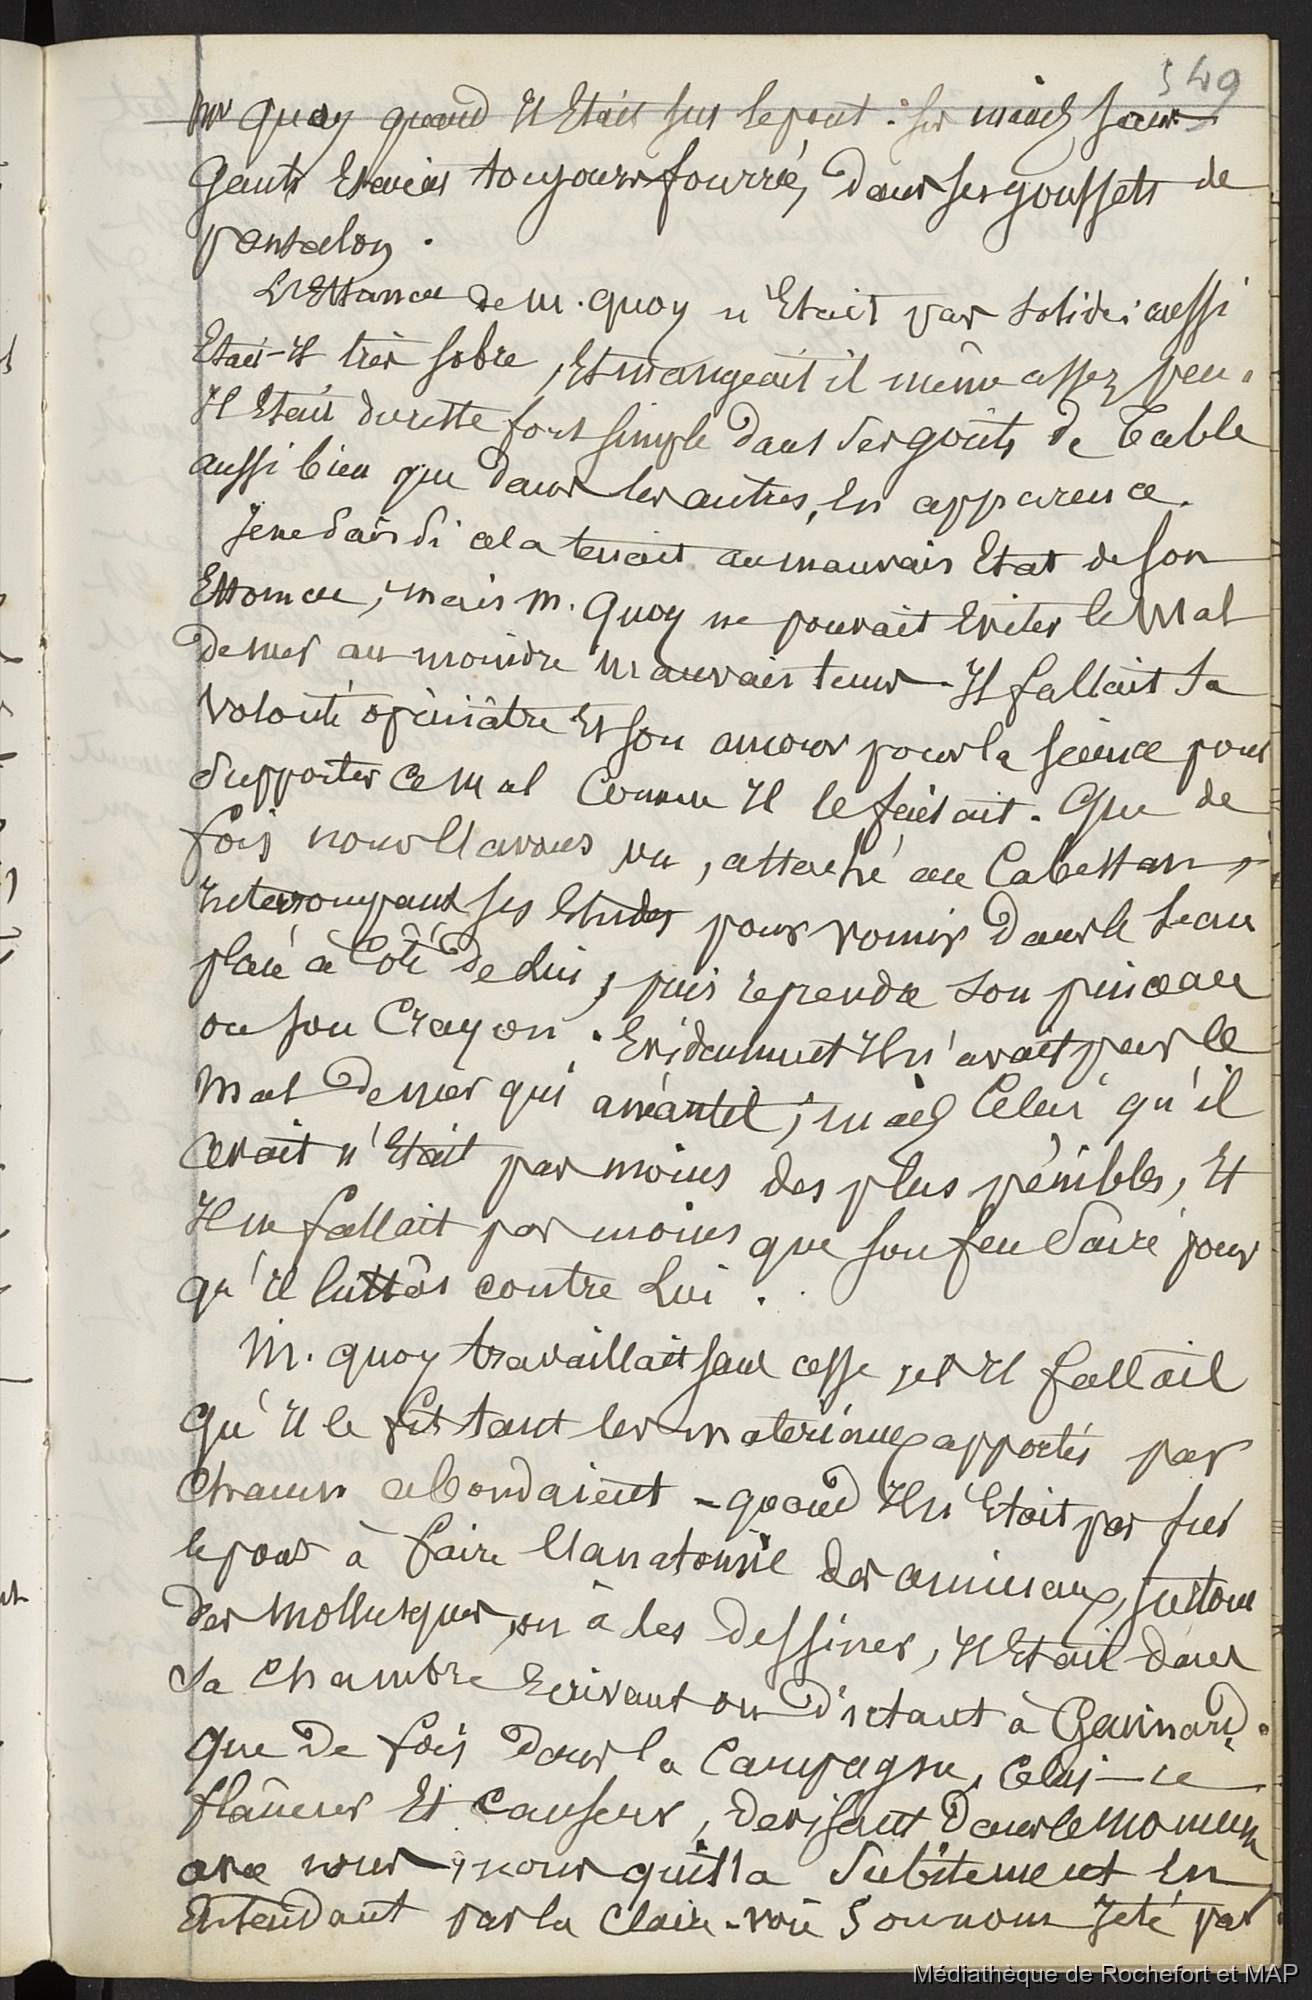 549
Mr Quoy quand Il Etait sur le pont : ses mains sans
Gants Etaient toujours fourrées dans ses goussets de
pantalon.
L'Estomac de M. Quoy n'Etait pas solide ; aussi
Etait-Il très sobre, Et mangeait il même assez peu.
Il Etait du reste fort simple dans ses goûts de Table
aussi bien que dans les autres, En apparence.
Je ne sais si cela tenait au mauvais Etat de son
Estomac ; mais M. Quoy ne pouvait Eviter le Mal
de mer au moindre mauvais tems. Il fallait sa
Volonté opiniâtre Et son amour pour la science pour
supporter ce mal comme Il le faisait. Que de
fois nous l'avons vu, attaché au Cabestan,
Interrompant ses Etudes pour vomir dans le seau
placé à Côté de Lui, puis reprendre son pinceau
ou son Crayon. Evidemment Il n'avait pas le
Mal de mer qui anéantit ; mais Celui qu'il
avait n'Etait pas moins des plus pénibles, Et
Il ne fallait pas moins que son feu Sacré pour
qu'il luttât contre Lui.
M. Quoy travaillait sans cesse, et Il fallait
qu'Il le fit tant les materiaux apportés par
Chacun abondaient - quand Il n'Etait pas sur
le pont à faire l'anatomie des animaux, surtout
des Mollusques, ou à les dessiner, Il Etait dans
sa Chambre Ecrivant ou Dictant à Gaimard.
Que de fois dans la Campagne, Celui-ci
flâneur Et Causeur, devisant dans le moment
avec nous, nous quitta subitement En
Entendant par la Claire-voie son nom Jeté par
Médiathèque de Rochefort et MAP